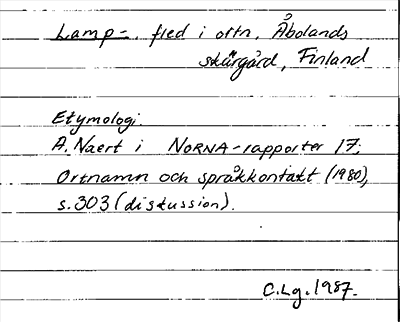 Lamp-, fled i ortn. Åbolands
skärgård, Finland
Etymologi:
A. Naert i NORNA-rapporter 17;
Ortnamn och språkkontakt (1980),
s. 303 (diskussion).
C.Lg. 1987.